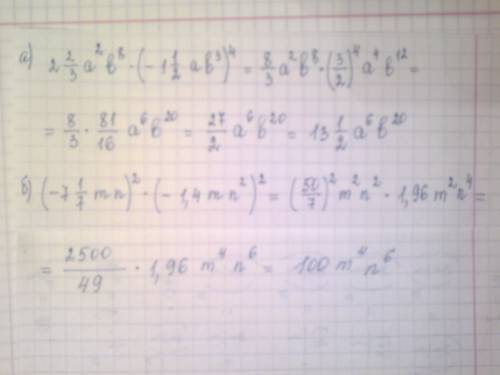 а) 2 2/3 a² b⁸ · (−1 1/2 a b³)⁴ = 8/3 a² b⁸ · (3/2)⁴ a⁴ b¹² =
= 8/3 · 81/16 a⁶ b²⁰ = 27/2 a⁶ b²⁰ = 13 1/2 a⁶ b²⁰
б) (−7 1/7 m n)² · (−1,4 m n²)² = (50/7)² m² n² · 1,96 m² n⁴ =
= 2500/49 · 1,96 m⁴ n⁶ = 100 m⁴ n⁶